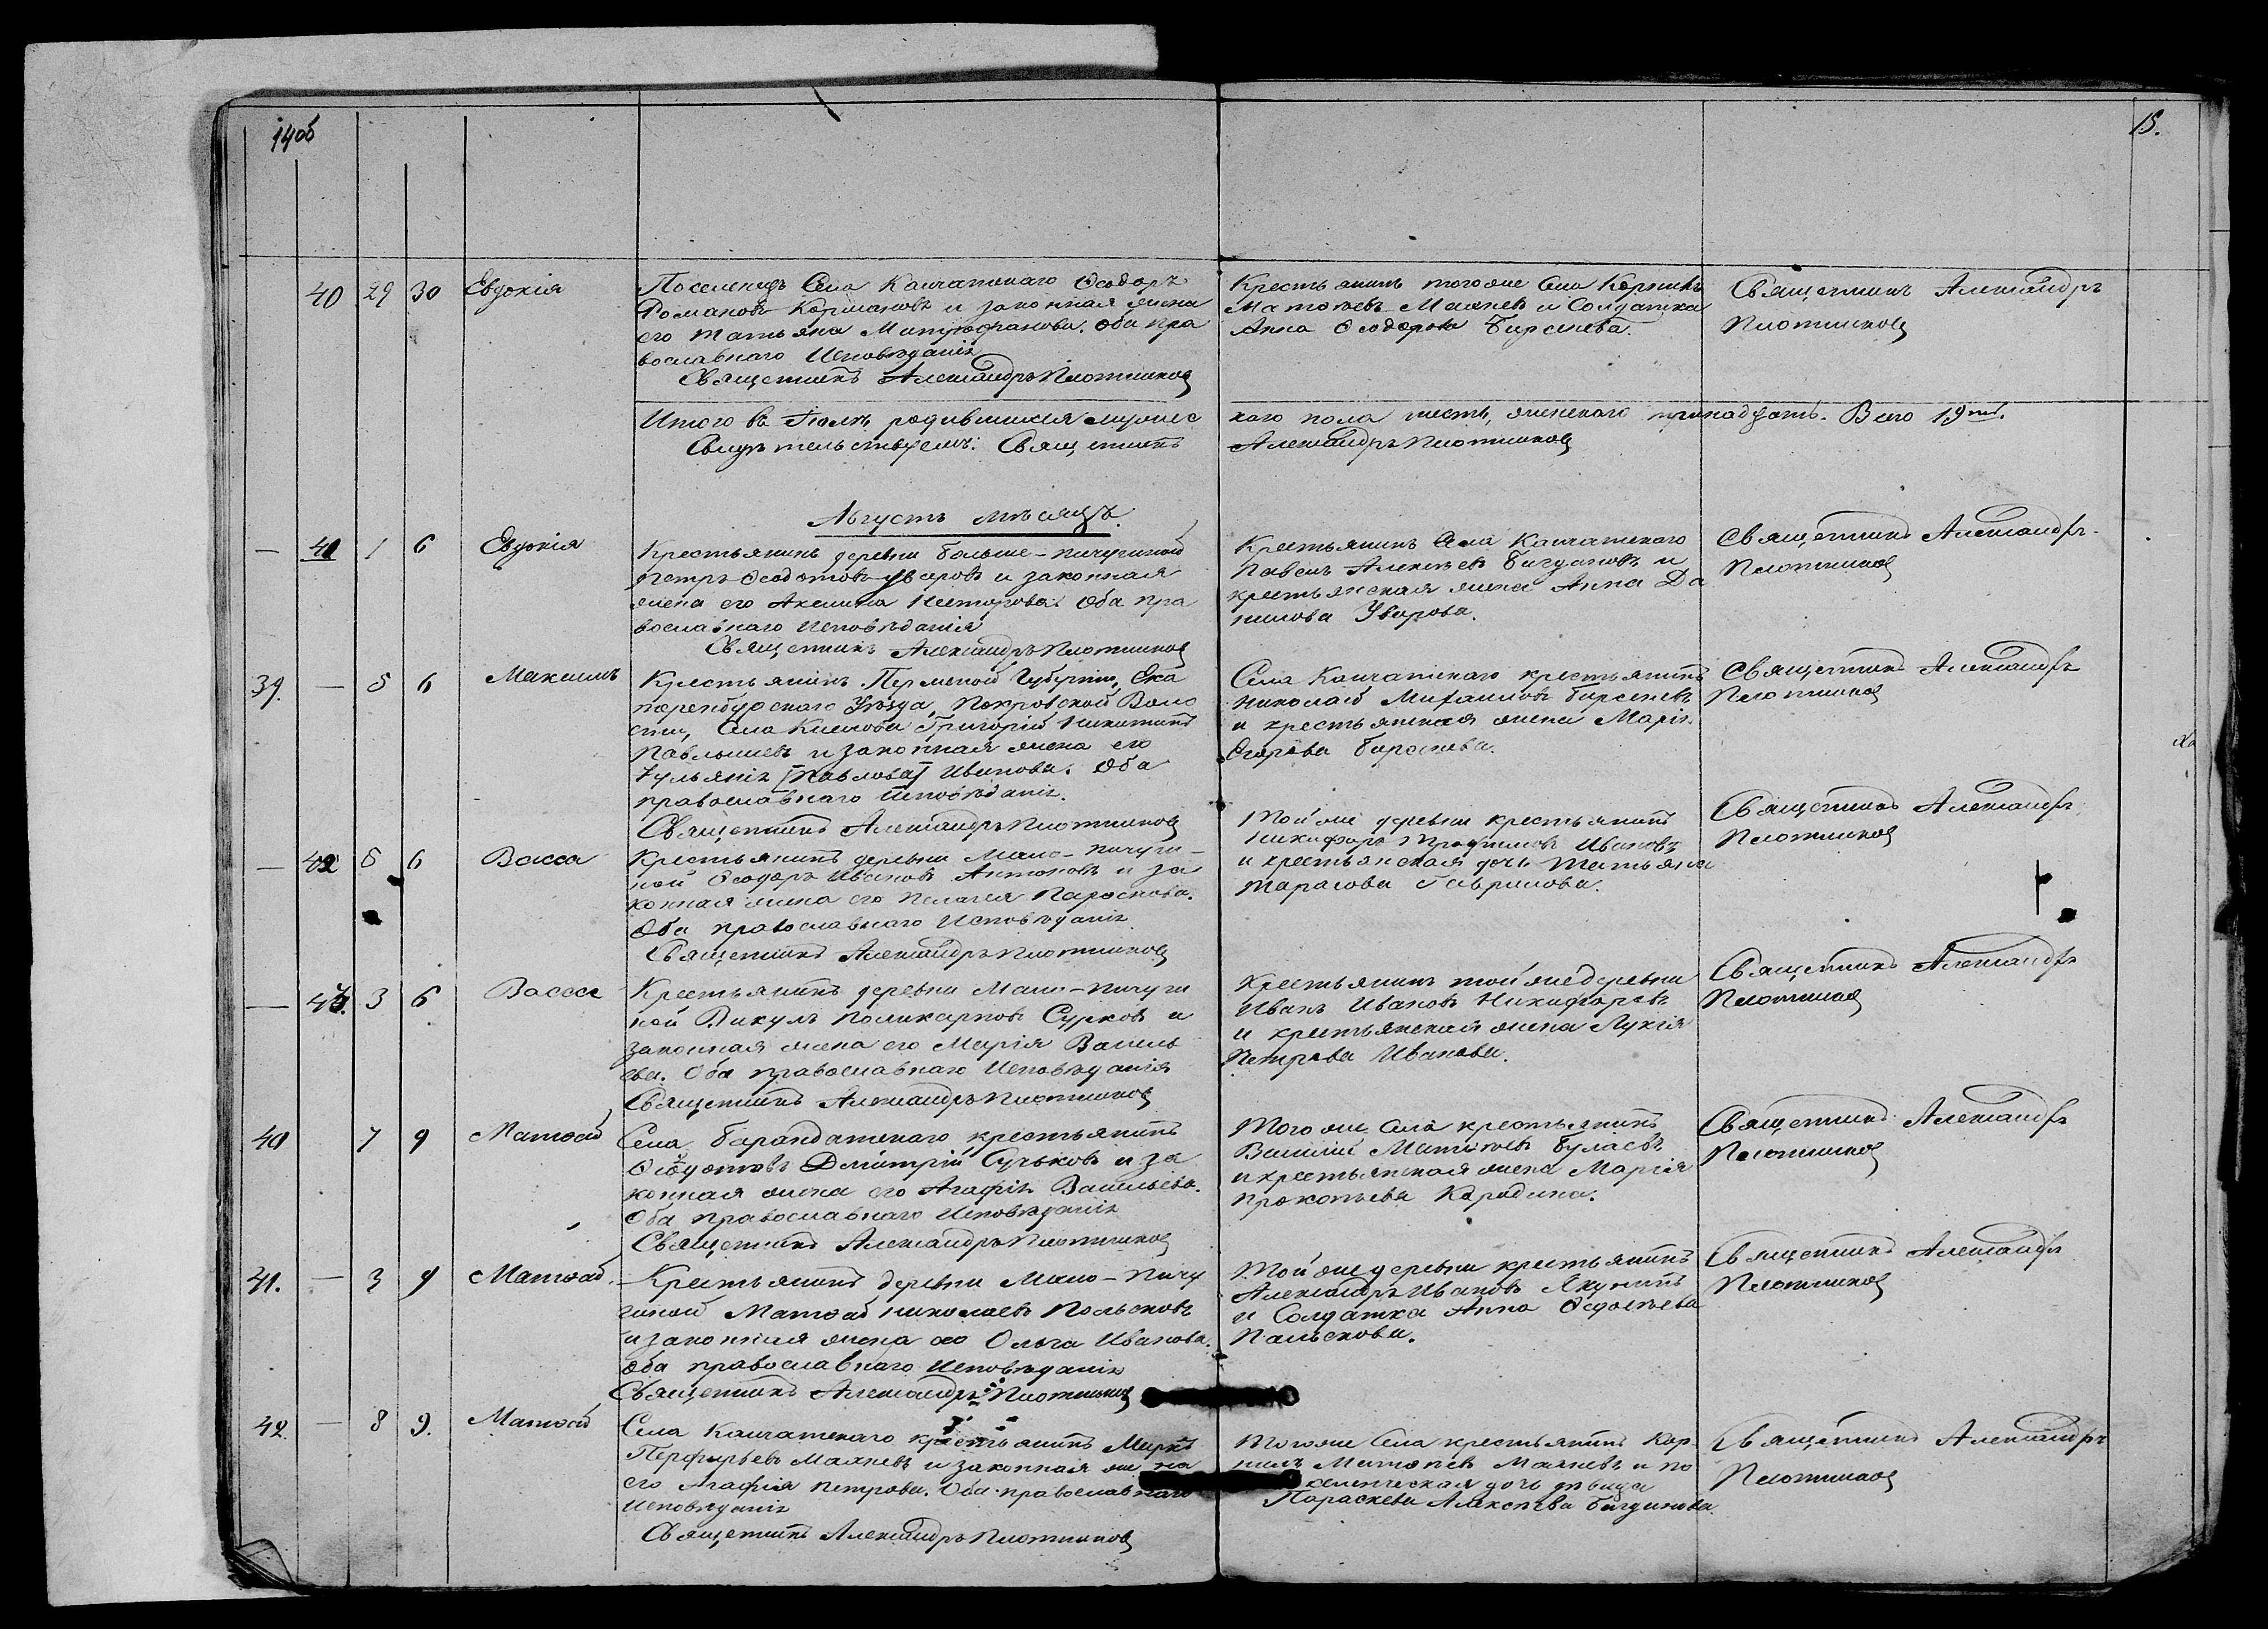 14об
15.
40 29 30 Евдокія
Поселенецъ Села Камчатскаго Ѳеодоръ
Романовъ Кормановъ и законная жена
его Татьяна Митрофанова. Оба пра
вославнаго Исповѣданія
Священникъ Александръ Плотниковъ
Крестьянинъ тогоже Села Корнилъ
Матѳѣевъ Маянсевъ и Солдатка
Анна Ѳеодорова Бирсенева.
Священникъ Александръ
Плотниковъ
Итого въ Іюлѣ родившихся мужес
каго пола шесть, женскаго тринадцать. Всего 19ть.
Свидѣтельствуемъ: Священникъ
Александръ Плотниковъ
Августъ мѣсяцъ.
— 41 1 6 Евдокія
Крестьянинъ деревни Больше-пичугиной
Петръ Ѳеодотовъ Уваровъ и законная
жена его Акилина Несторова. Оба пра
вославнаго Исповѣданія
Священникъ Александръ Плотниковъ
Крестьянинъ Села Камчатскаго
Павелъ Алексѣевъ Бигдановъ и
крестьянская жена Анна Да
нилова Уварова.
Священникъ Александръ
Плотниковъ
39. — 5 6 Максимъ
Крестьянинъ Пермской Губерніи, Ека
теренбурскаго Уѣзда, Покровской Воло
сти, Села Клевова Григорій Никитинъ
Павлышевъ и законная жена его
Іульянія [Павлова] Иванова. Оба
православнаго Исповѣданія.
Священникъ Александръ Плотниковъ
Села Камчатскаго крестьянинъ
Николай Михаиловъ Бирсеневъ
и крестьянская жена Марія
Егорова Бирсенева.
Священникъ Александръ
Плотниковъ
— 42 5 6 Васса
Крестьянинъ деревни Мало-пичуги-
ной Ѳеодоръ Ивановъ Антоновъ и за
конная жена его Пелагея
Оба православнаго Исповѣданія
Священникъ Александръ Плотниковъ
Тойже деревни крестьянинъ
Никифоръ Трофимовъ Ивановъ
и крестьянская дочь Татьяна
Тарасова Гаврилова.
Священникъ Александръ
Плотниковъ
— 43. 3 6 Васса
Крестьянинъ деревни Мало-пичуги
ной Викулъ Поликарповъ Сурковъ и
законная жена его Марія Василь
ева. Оба православнаго Исповѣданія
Священникъ Александръ Плотниковъ
Крестьянинъ тойже деревни
Иванъ Ивановъ Никифоровъ
и крестьянская жена Лукія
Петрова Иванова.
Священникъ Александръ
Плотниковъ
40 7 9 Матѳей
Села Барандатскаго крестьянинъ
Ѳеодотовъ Дмитрій Сучьковъ и за
конная жена его Агафія Васильева.
Оба православнаго Исповѣданія
Священникъ Александръ Плотниковъ
Тогоже Села крестьянинъ
Василій Матѳѣевъ Булаевъ
и крестьянская жена Марія
Прокопьева Карадина.
Священникъ Александръ
Плотниковъ
41. — 3 9 Матѳей.
Крестьянинъ деревни Мало-пичу
гиной Матѳей Николаевъ Польсковъ
и законная жена его Ольга Иванова.
Оба православнаго Исповѣданія
Священникъ Александръ Плотниковъ
Тойже деревни крестьянинъ
Александръ Ивановъ Якунинъ
и Солдатка Анна
Польскова.
Священникъ Александръ
Плотниковъ
42. — 8 9. Матѳей
Села Камчатскаго крестьянинъ Маркъ
Перфирьевъ Маянсевъ и законная жена
его Агафія Петрова. Оба православнаго
Исповѣданія
Священникъ Александръ Плотниковъ
Тогоже Села крестьянинъ Кор
нилъ Матѳѣевъ Маянсевъ и по
селенческая дочь дѣвица
Параскева Алексѣева Бигданова.
Священникъ Александръ
Плотниковъ